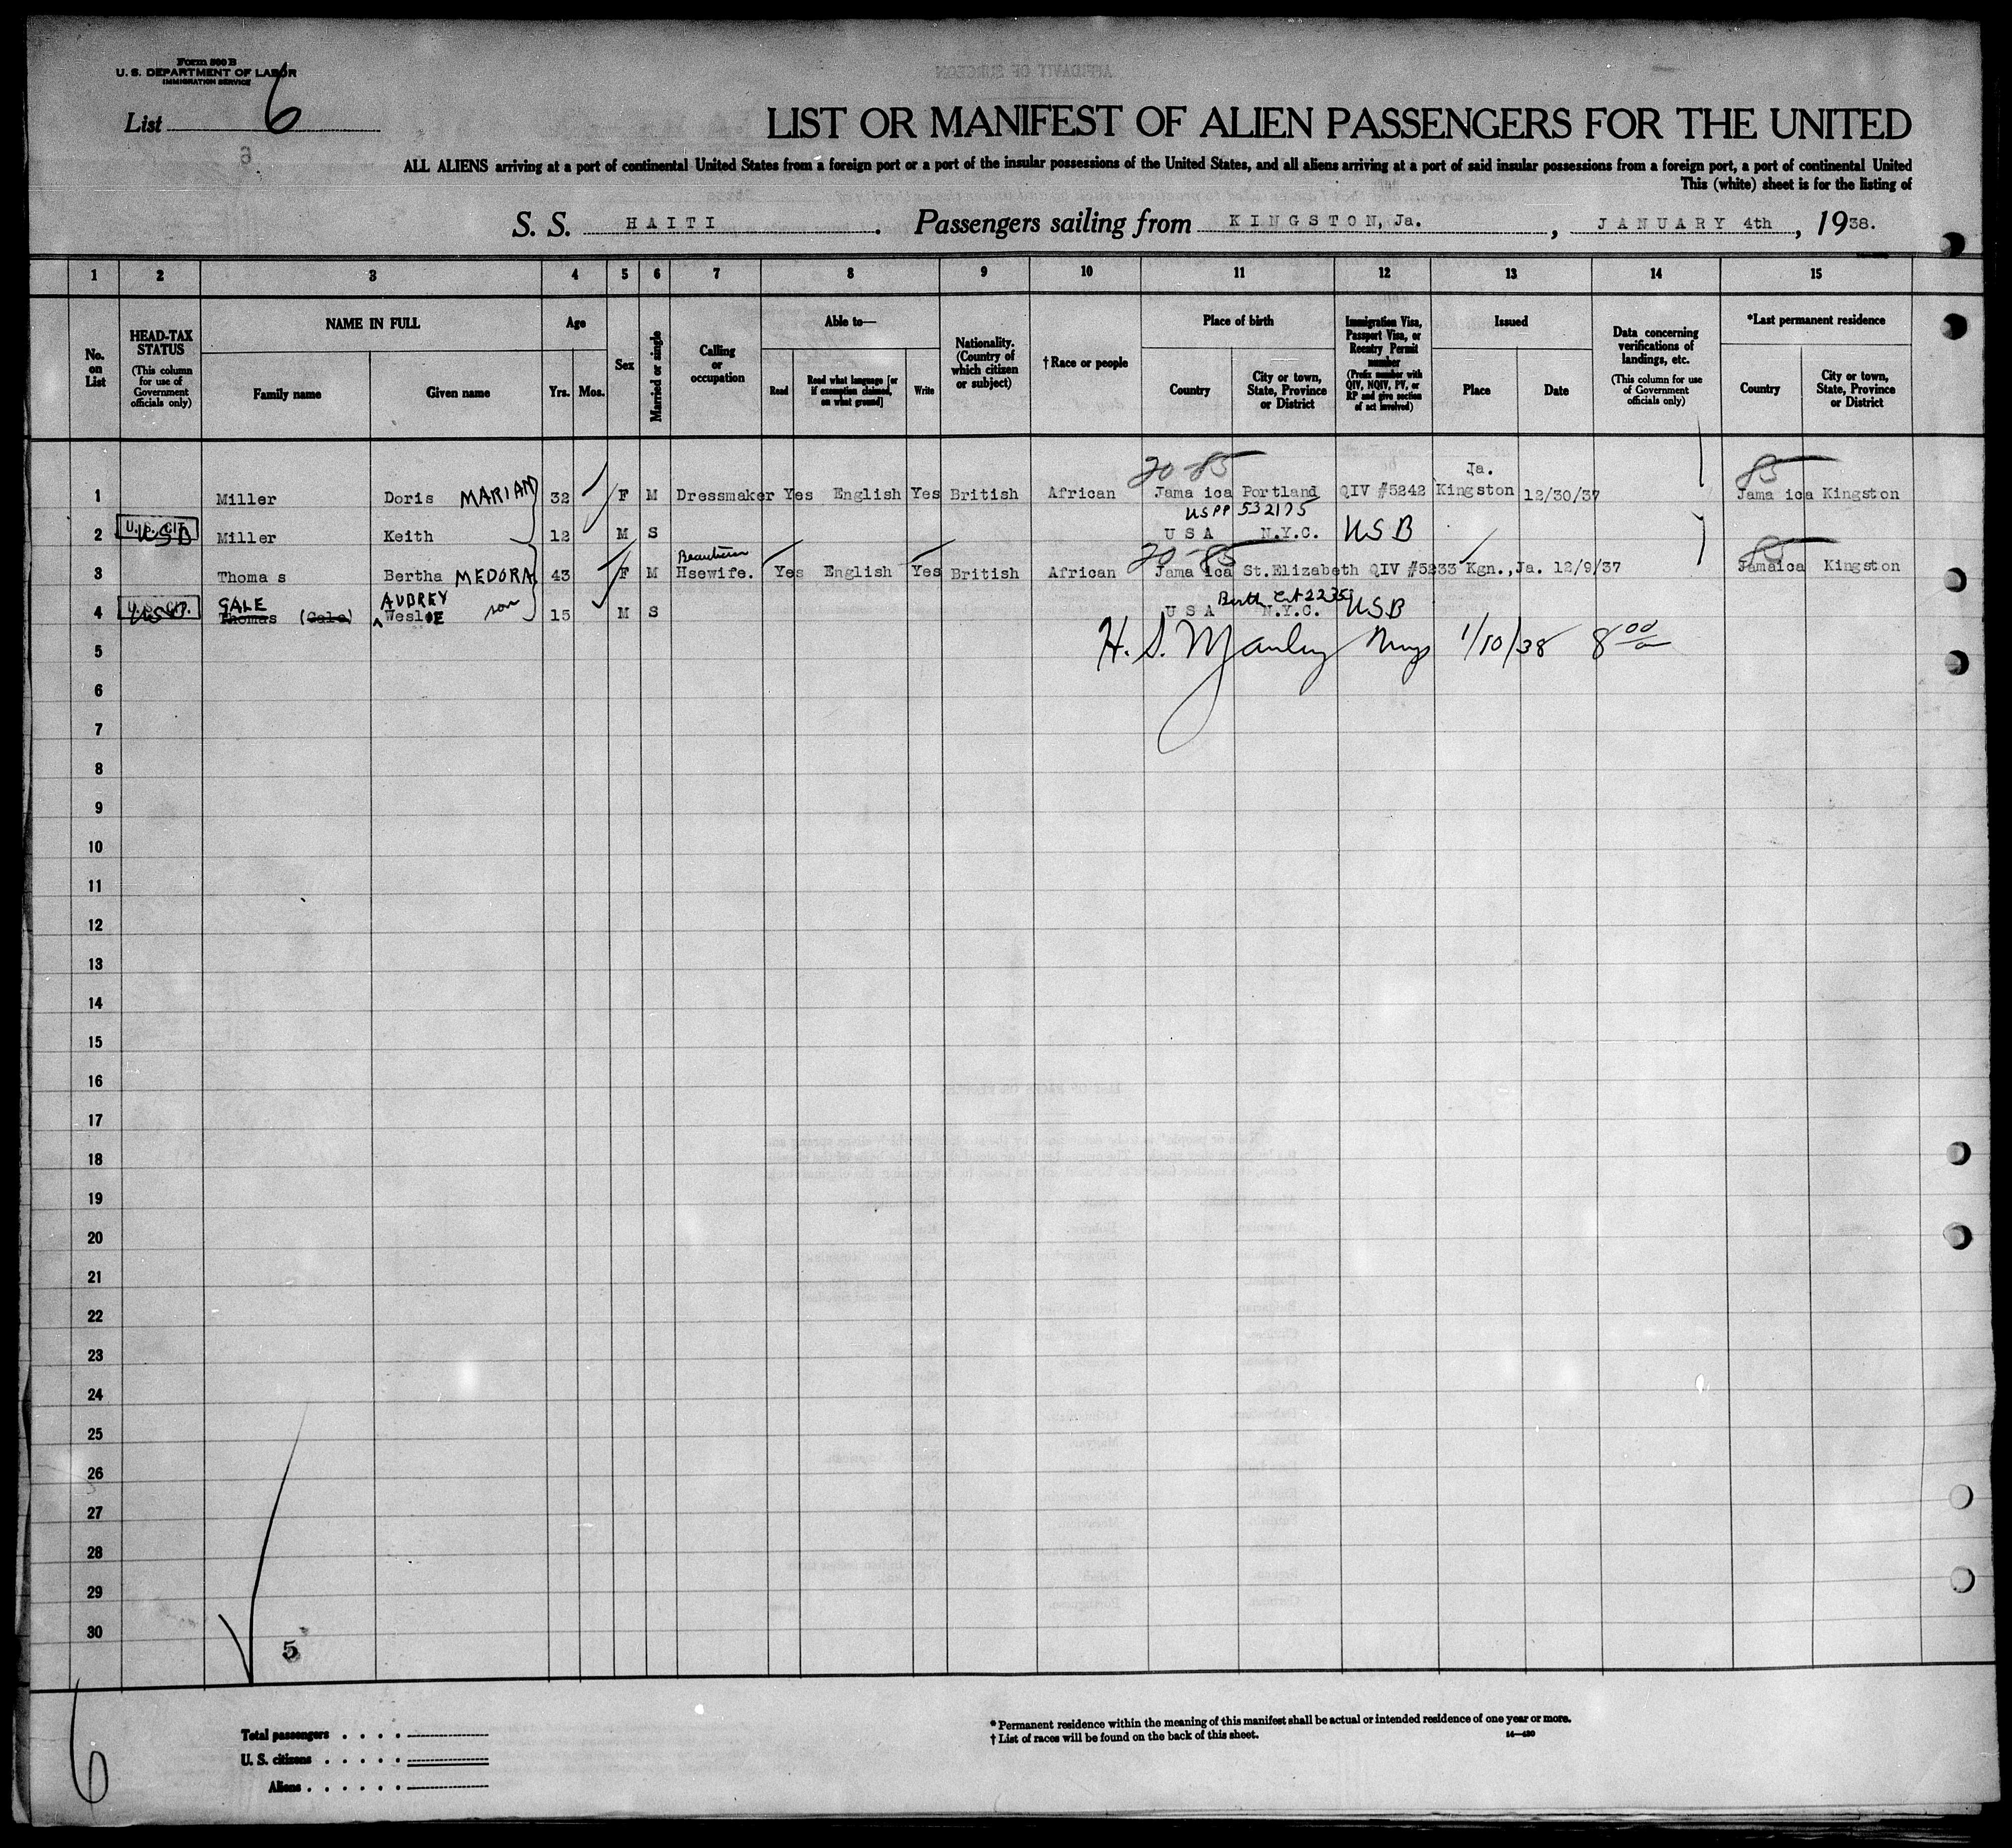 Form 500 B
U. S. DEPARTMENT OF LABOR
IMMIGRATION SERVICE
List 6
6
LIST OR MANIFEST OF ALIEN PASSENGERS FOR THE UNITED
ALL ALIENS arriving at a port of continental United States from a foreign port or a port of the insular possessions of the United States, and all aliens arriving at a port of said insular possessions from a foreign port, a port of continental United
This (white) sheet is for the listing of
S. S. HAITI . Passengers sailing from KINGSTON, Ja. , JANUARY 4th , 1938.
1 2 3 4 5 6 7 8 9 10 11 12 13 14 15
No. on List
HEAD-TAX STATUS (This column for use of Government officials only)
NAME IN FULL
Family name Given name
Age
Yrs. Mos.
Sex
Married or single
Calling or occupation
Able to—
Read Read what language [or if exemption claimed, on what ground] Write
Nationality. (Country of which citizen or subject)
† Race or people
Place of birth
Country City or town, State, Province or District
Immigration Visa, Passport Visa, or Reentry Permit number (Prefix number with QIV, NQIV, PV, or RP and give section of act involved)
Issued
Place Date
Data concerning verifications of landings, etc. (This column for use of Government officials only)
*Last permanent residence
Country City or town, State, Province or District
20-85 Ja. 85
1 Miller Doris MARIAN 32 F M Dressmaker Yes English Yes British African Jama ica Portland QIV #5242 Kingston 12/30/37 Jama ica Kingston
USPP 532175
2 U.S. CIT. USB Miller Keith 12 M S U S A N.Y.C. USB
Beautician 20-85 85
3 Thoma s Bertha MEDORA 43 F M Hsewife. Yes English Yes British African Jama ica St.Elizabeth QIV #5233 Kgn.,Ja. 12/9/37 Jamaica Kingston
GALE AUBREY Birth Cert 2235
4 U.S. CIT. USB Thomas (Gale) WeslOE son 15 M S U S A N.Y.C. USB
5 H. S. Manley 1/10/38 8 00
6
7
8
9
10
11
12
13
14
15
16
17
18
19
20
21
22
23
24
25
26
27
28
29
30
5
6
Total passengers . . . .
U. S. citizens . . . . .
Aliens . . . . . .
* Permanent residence within the meaning of this manifest shall be actual or intended residence of one year or more.
† List of races will be found on the back of this sheet.
14—430